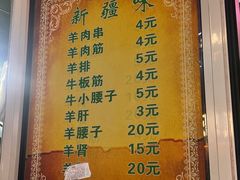 新疆味
羊肉串 4元
羊肉筋 4元
羊排 5元
牛板筋 4元
牛小腰子 5元
羊肝 3元
羊腰子 20元
羊肾 15元
20元